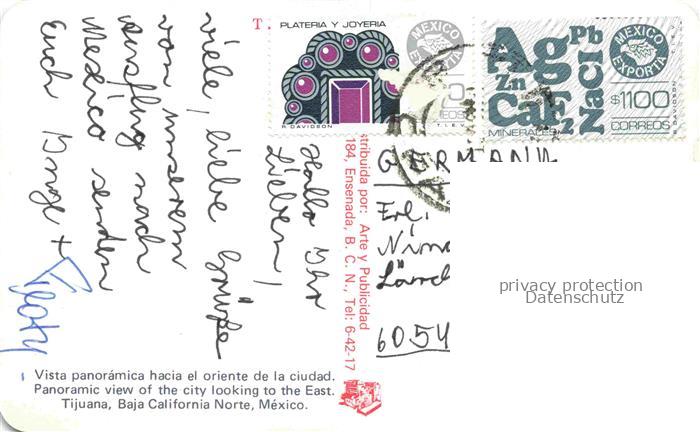 T.
PLATERIA Y JOYERIA
MEXICO
EXPORTA
R. DAVIDSON
T.I.E.V.
Ag Pb
Zn
NaCl
CaF2
MEXICO
EXPORTA
$1100
MINERALES
CORREOS
Hallo Ihr
Lieben,
viele, liebe Grüße
von unserem
Ausflug nach
Mexico senden
Euch Inge +
tribuida por: Arte y Publicidad
184, Ensenada, B. C. N., Tel: 6-42-17
GERMANY
Erl.
6054
privacy protection
Datenschutz
Vista panorámica hacia el oriente de la ciudad.
Panoramic view of the city looking to the East.
Tijuana, Baja California Norte, México.